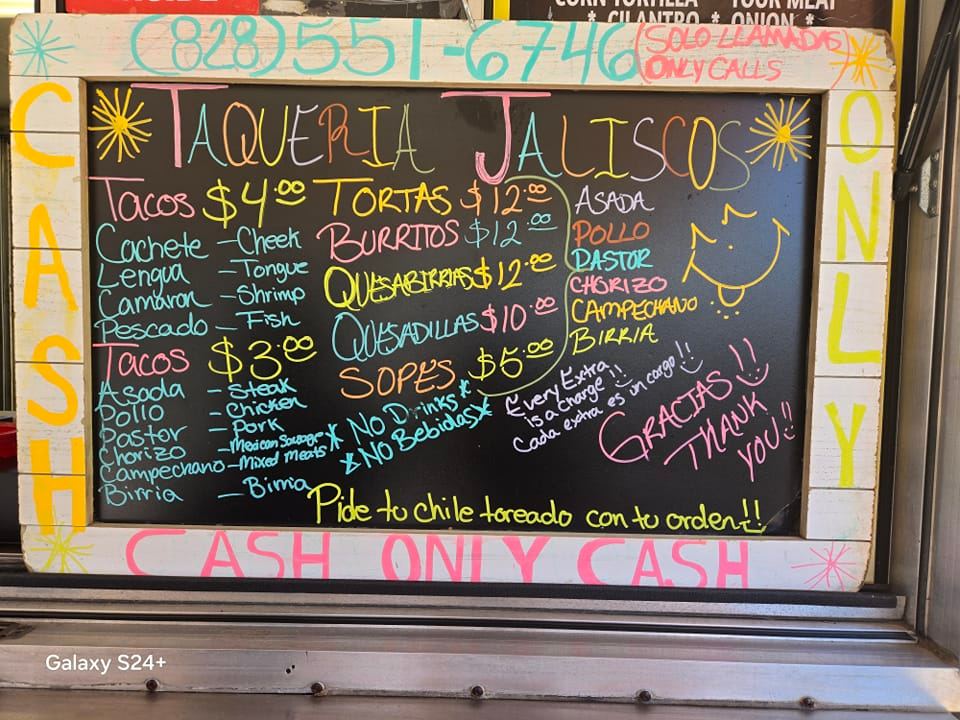 CORN TORTILLA * YOUR MEAT
* CILANTRO * ONION *
(828)551-6746
(SOLO LLAMADAS)
ONLY CALLS
CASH
ONLY
TAQUERIA JALISCOS
Tacos $4.00
Cachete - Cheek
Lengua - Tongue
Camaron - Shrimp
Pescado - Fish
Tacos $3.00
Asada - Steak
Pollo - Chicken
Pastor - Pork
Chorizo - Mexican Sausage
Campechano - Mixed Meats
Birria - Birria
TORTAS $12.00
BURRITOS $12.00
QUESABIRRIAS $12.00
QUESADILLAS $10.00
SOPES $5.00
* No Drinks *
* No Bebidas *
ASADA
POLLO
PASTOR
CHORIZO
CAMPECHANO
BIRRIA
Every Extra
is a charge!!
Cada extra es un cargo!!
GRACIAS!!
THANK
YOU!!
Pide tu chile toreado con tu orden!!
CASH ONLY CASH
Galaxy S24+